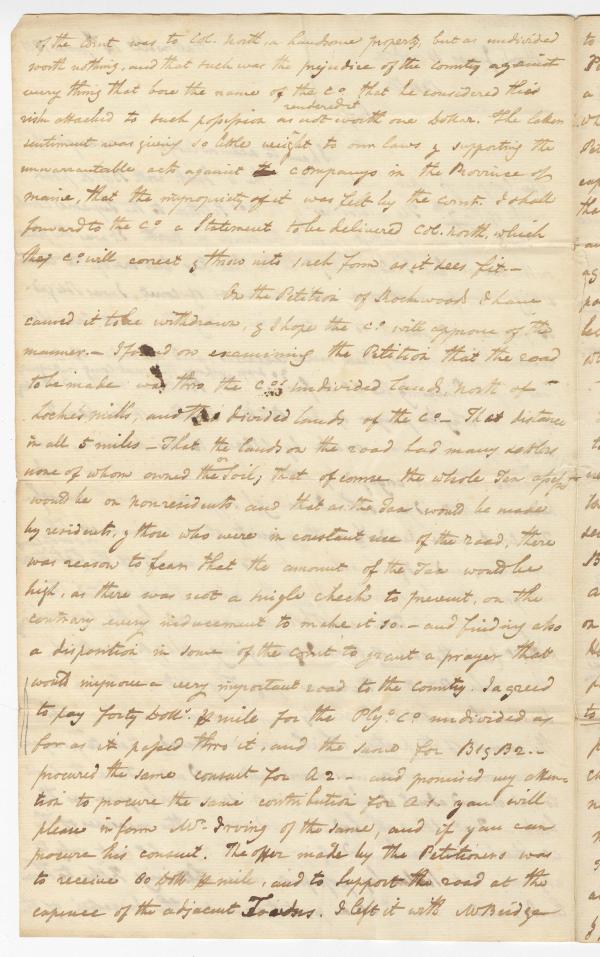 of the Court was to Col. North, a handsome property, but as undivided
worth nothing, and that such was the prejudice of the County against
every thing that bore the name of the Co. that he considered this
rendered it
risk attached to such possession as not worth one Dollar. The
sentiment was giving so little weight to our laws & supporting the
unwarrantable acts against the Companys in the Province of
maine, that the impropriety of it was felt by the Court. I shall
forward to the Co. a Statement to be delivered Col. North, which
they Co. will correct & throw into such form as it sees fit.–
On the Petition of Rockwood I have
caused it to be withdrawn, & I hope the Co. will approve of the
manner.– I found on examining the Petition that the road
to be made was thro the Co's undivided lands, north of
Lockes mills, and thro divided lands of the Co.– That distance
in all 5 miles – That the lands on the road had many settlers
none of whom owned the Soil; that of course the whole Tax
would be on nonresidents and that as the Tax would be made
by residents, & those who were in constant use of the road, there
was reason to fear that the amount of the Tax would be
high, as there was not a single check to prevent, on the
contrary every inducement to make it so.– and finding also
a disposition in some of the Court to grant a prayer that
would improve a very important road to the country. I agreed
to pay forty Dolls. p mile for the Plyo. Co. undivided as
far as it passed thro it, and the same for B1 & B2.–
procured the same consent for A 2 – and promised my atten-
tion to procure the same contribution for A 1. you will
please inform Mr. Irving of the same, and if you can
procure his consent. The offer made by the Petitioners was
to receive 80 Dolls p mile, and to support the road at the
expence of the adjacent Towns. I left it with Mr Bridge